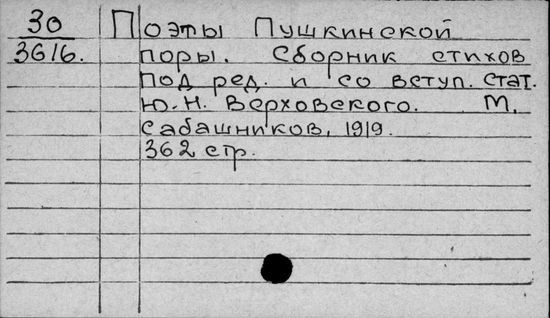 30 Поэты Пушкинской
3616. поры. Сборник стихов
под ред. и со вступ. стат.
Ю.Н. Верховского. М.
Сабашников, 1919.
362 стр.